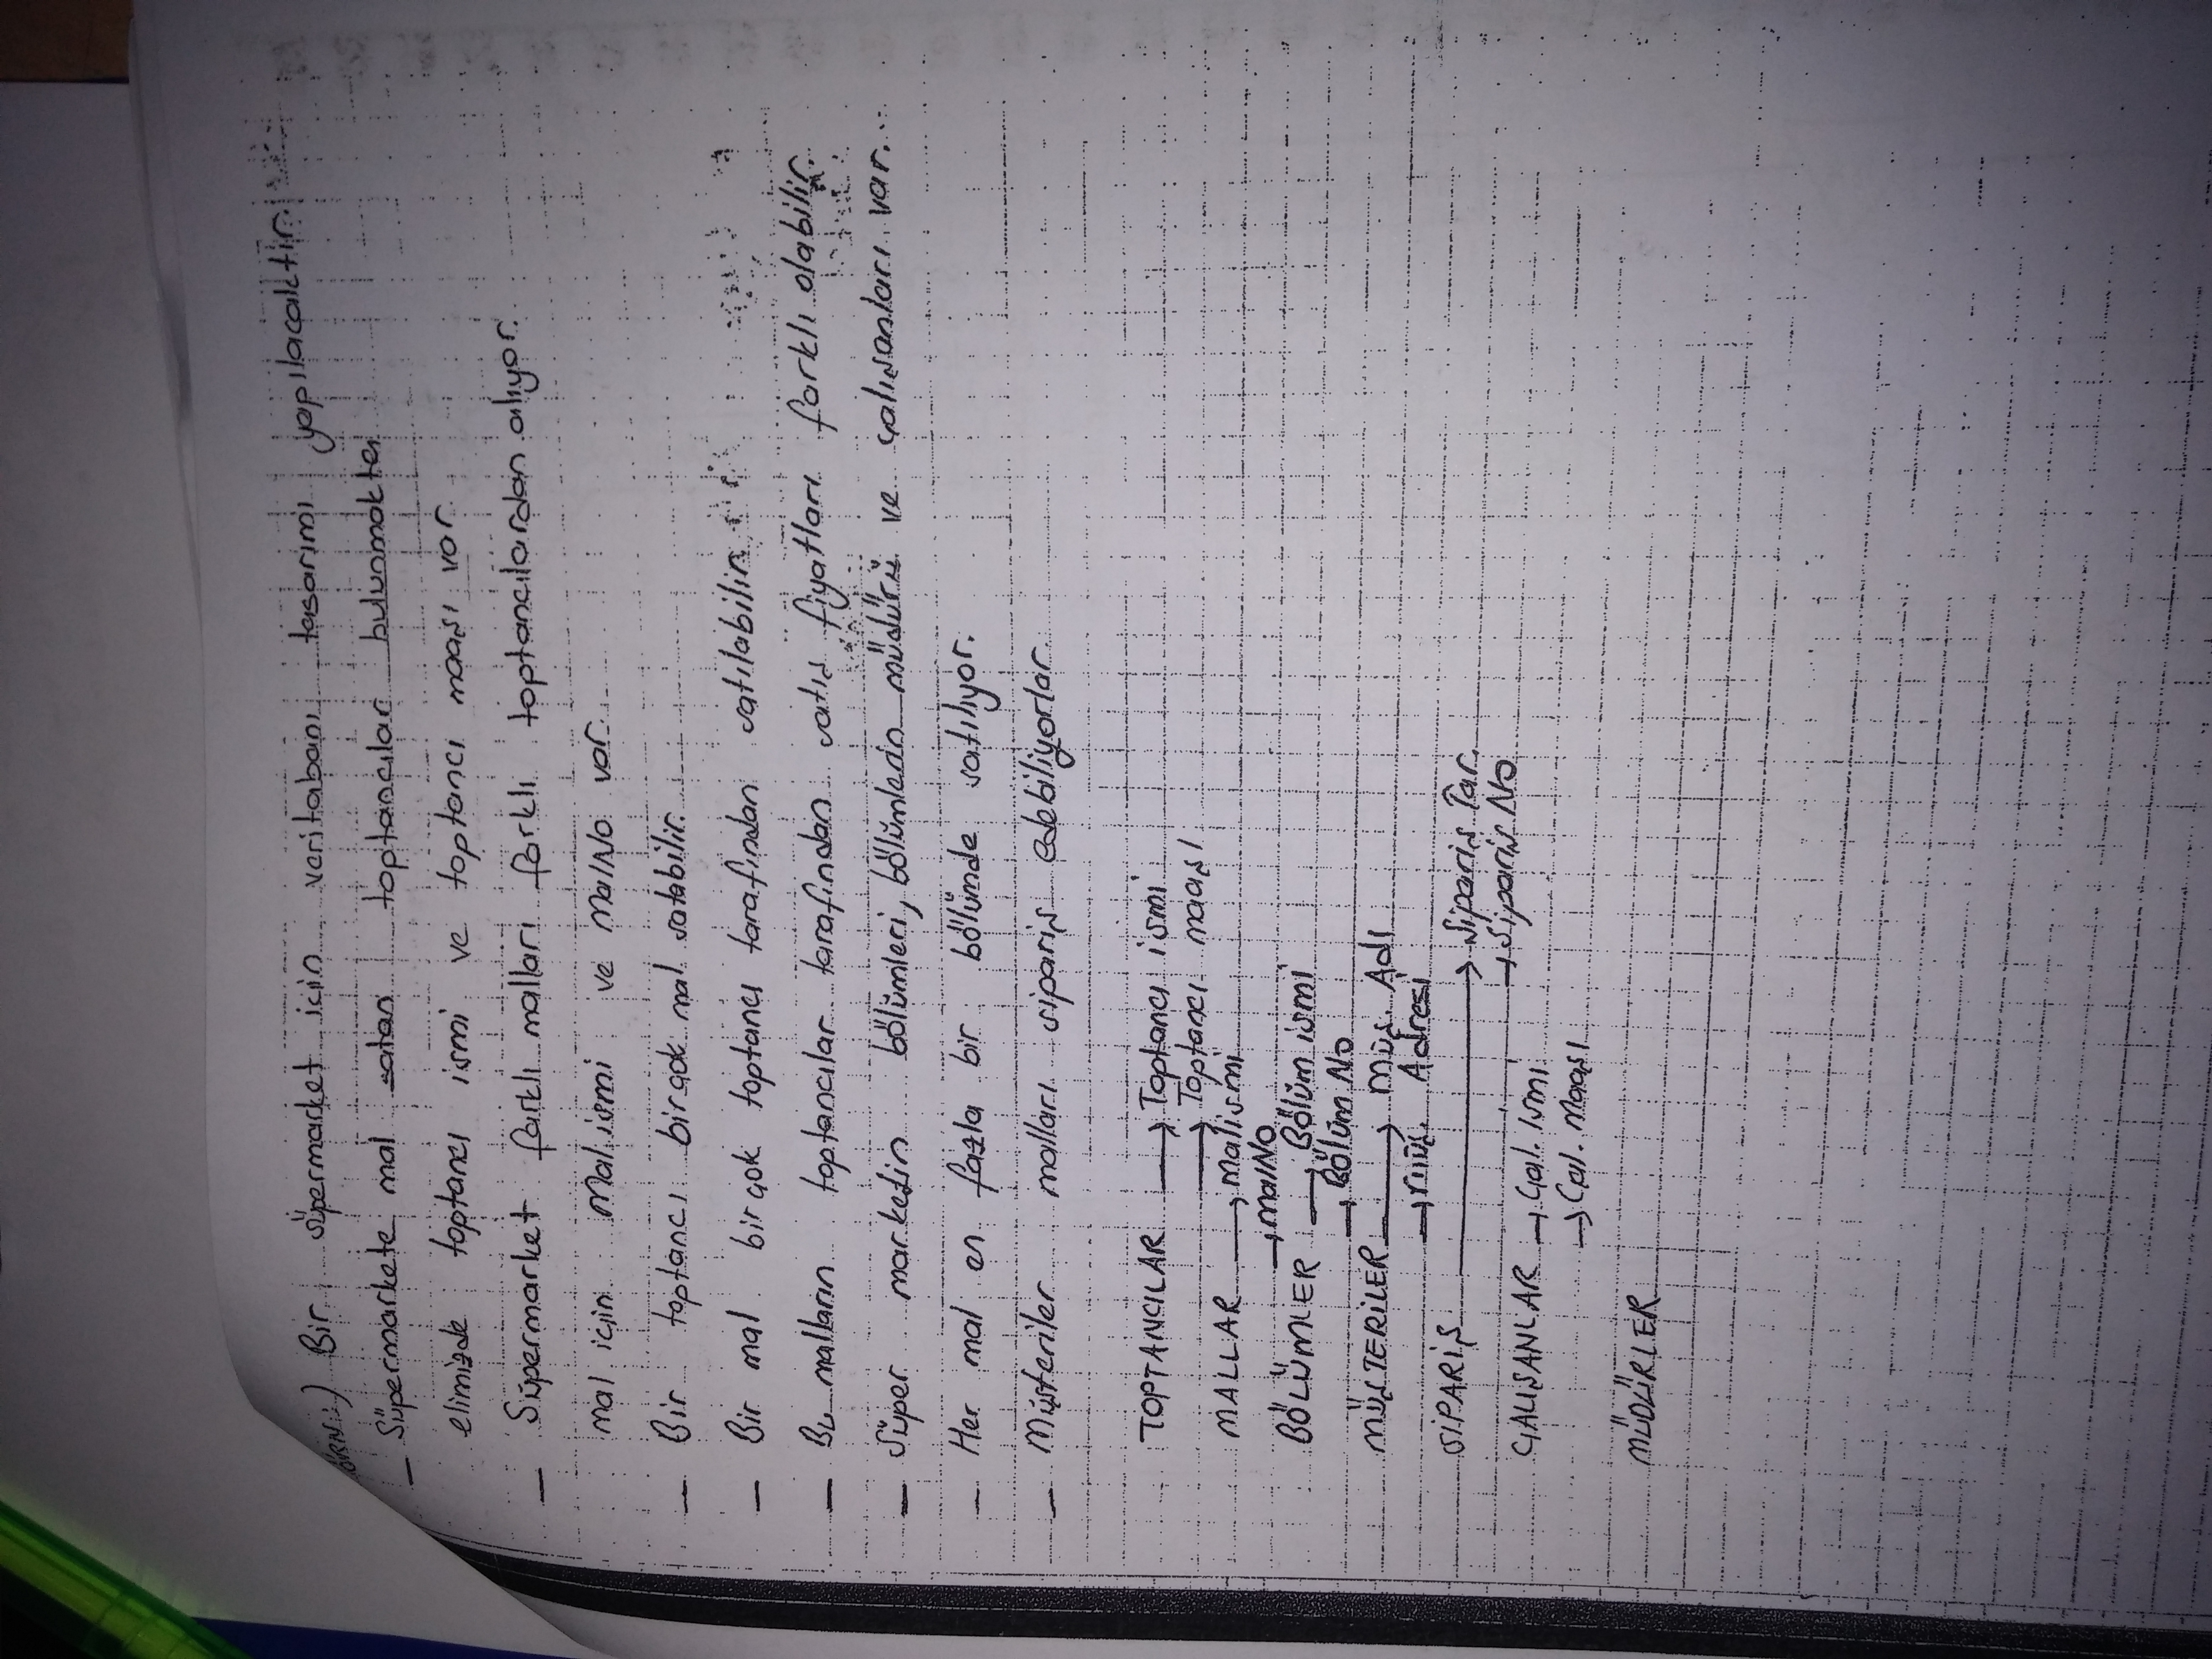 ÖRN:) Bir süpermarket için veritabanı tasarımı yapılacaktır.
_ Süpermarkete mal satan toptancılar bulunmakta
elimizde toptancı ismi ve toptancı maaşı var.
_ Süpermarket farklı malları farklı toptancılardan alıyor.
mal için Malismi ve MalNo var.
_ Bir toptancı birçok mal satabilir.
_ Bir mal birçok toptancı tarafından satılabilir.
_ Bu malların toptancılar tarafından satış fiyatları farklı olabilir.
_ Süper marketin bölümleri, bölümlerin müdürü ve çalışanları var.
_ Her mal en fazla bir bölümde satılıyor.
_ Müşteriler malları sipariş edebiliyorlar.
TOPTANCILAR → Toptancı ismi
→ Toptancı maaşı
MALLAR → Malismi
→ malNo
BÖLÜMLER → Bölüm ismi
→ Bölüm No
MÜŞTERİLER → Müş. Adı
→ müş. Adresi
SİPARİŞ → Sipariş Tar.
→ Sipariş No
ÇALIŞANLAR → Çal. ismi
→ Çal. Maaşı
MÜDÜRLER